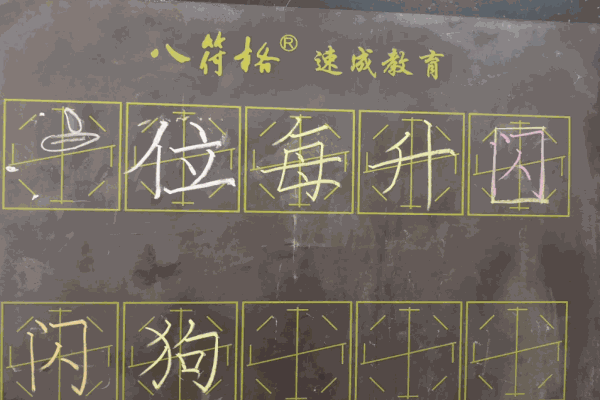 八符格® 速成教育
位每升闪
闪狗